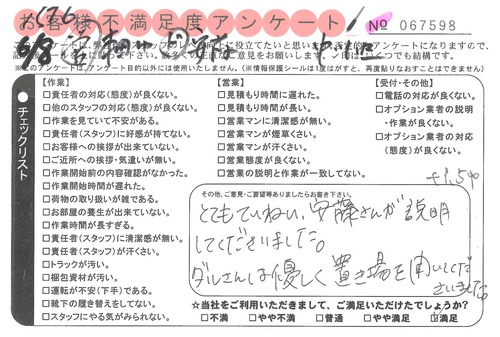 お客様不満足度アンケート
No 067598
【作業】
□責任者の対応(態度)が良くない。
□他のスタッフの対応(態度)が良くない。
□作業を見ていて不安がある。
□責任者(スタッフ)に好感が持てない。
□お客様への挨拶が出来ていない。
□ご近所への挨拶・気遣いが無い。
□作業開始前の内容確認がなかった。
□作業開始時間が遅れた。
□荷物の取り扱いが雑である。
□お部屋の養生が出来ていない。
□作業時間が長すぎる。
□責任者(スタッフ)に清潔感が無い。
□責任者(スタッフ)が汗くさい。
□トラックが汚い。
□梱包資材が汚い。
□運転が不安(下手)である。
□靴下の履き替えをしてない。
□スタッフにやる気がみられない。
【営業】
□見積もり時間に遅れた。
□見積もり時間が長い。
□営業マンに清潔感が無い。
□営業マンが煙草くさい。
□営業マンが汗くさい。
□営業態度が良くない。
□営業の説明と作業が一致してない。
【受付・その他】
□電話の対応が良くない。
□オプション業者の説明
・作業が良くない。
□オプション業者の対応
(態度)が良くない。
●チェックリスト
その他、ご意見・ご要望等ありましたらお書き下さい。
とてもていねい、安藤さんが説明
してくださいました。
ダルさんは優しく置き場を聞いてくだ
さいました
☆当社をご利用いただきまして、ご満足いただけたでしょうか?
□不満 □やや不満 □普通 □やや満足 ☑満足